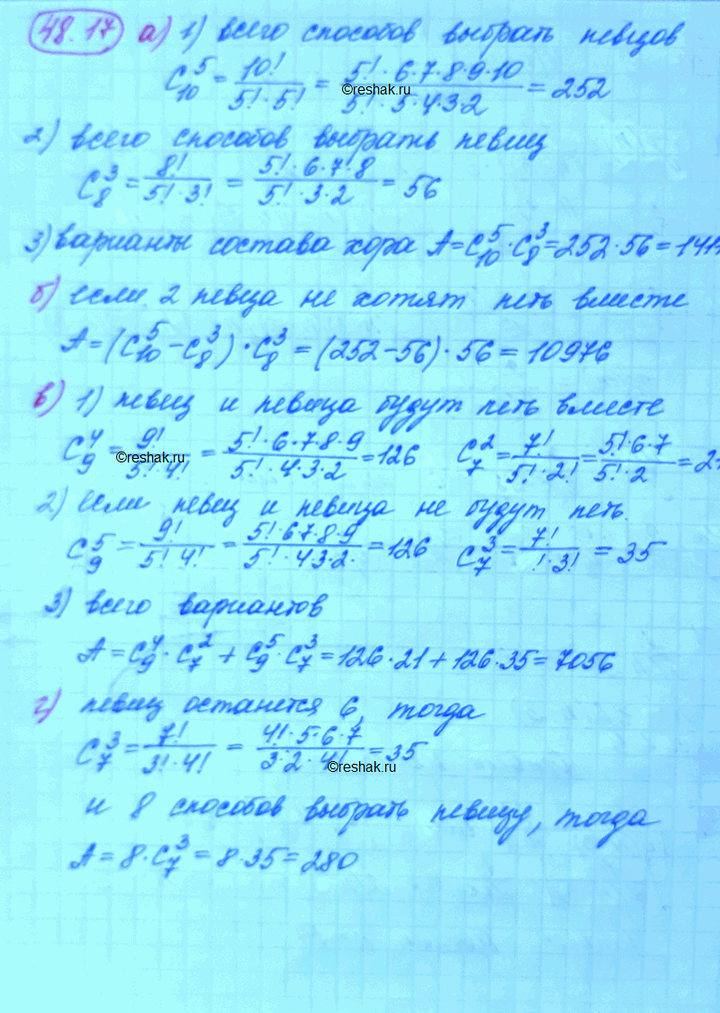 48.17 а) 1) всего способов выбрать певцов
C₁₀⁵ = 10!/(5!·5!) = (5!·6·7·8·9·10)/(5!·5·4·3·2) = 252
©reshak.ru
2) всего способов выбрать певиц
C₈³ = 8!/(5!·3!) = (5!·6·7·8)/(5!·3·2) = 56
3) варианты состава хора A=C₁₀⁵·C₈³=252·56=141
б) если 2 певца не хотят петь вместе
A=(C₁₀⁵−C₈³)·C₈³=(252−56)·56=10976
в) 1) певец и певица будут петь вместе
C₉⁴ = 9!/(5!·4!) = (5!·6·7·8·9)/(5!·4·3·2) = 126 C₇² = 7!/(5!·2!) = (5!·6·7)/(5!·2) = 21
©reshak.ru
2) если певец и певица не будут петь.
C₉⁵ = 9!/(5!4!) = (5!·6·7·8·9)/(5!·4·3·2·) = 126 C₇³ = 7!/(!·3!) = 35
3) всего вариантов
A=C₉⁴·C₇²+C₉⁵·C₇³=126·21+126·35=7056
г) певиц останется 6, тогда
C₇³ = 7!/(3!·4!) = (4!·5·6·7)/(3·2·4!) = 35
©reshak.ru
и 8 способов выбрать певицу, тогда
A=8·C₇³=8·35=280